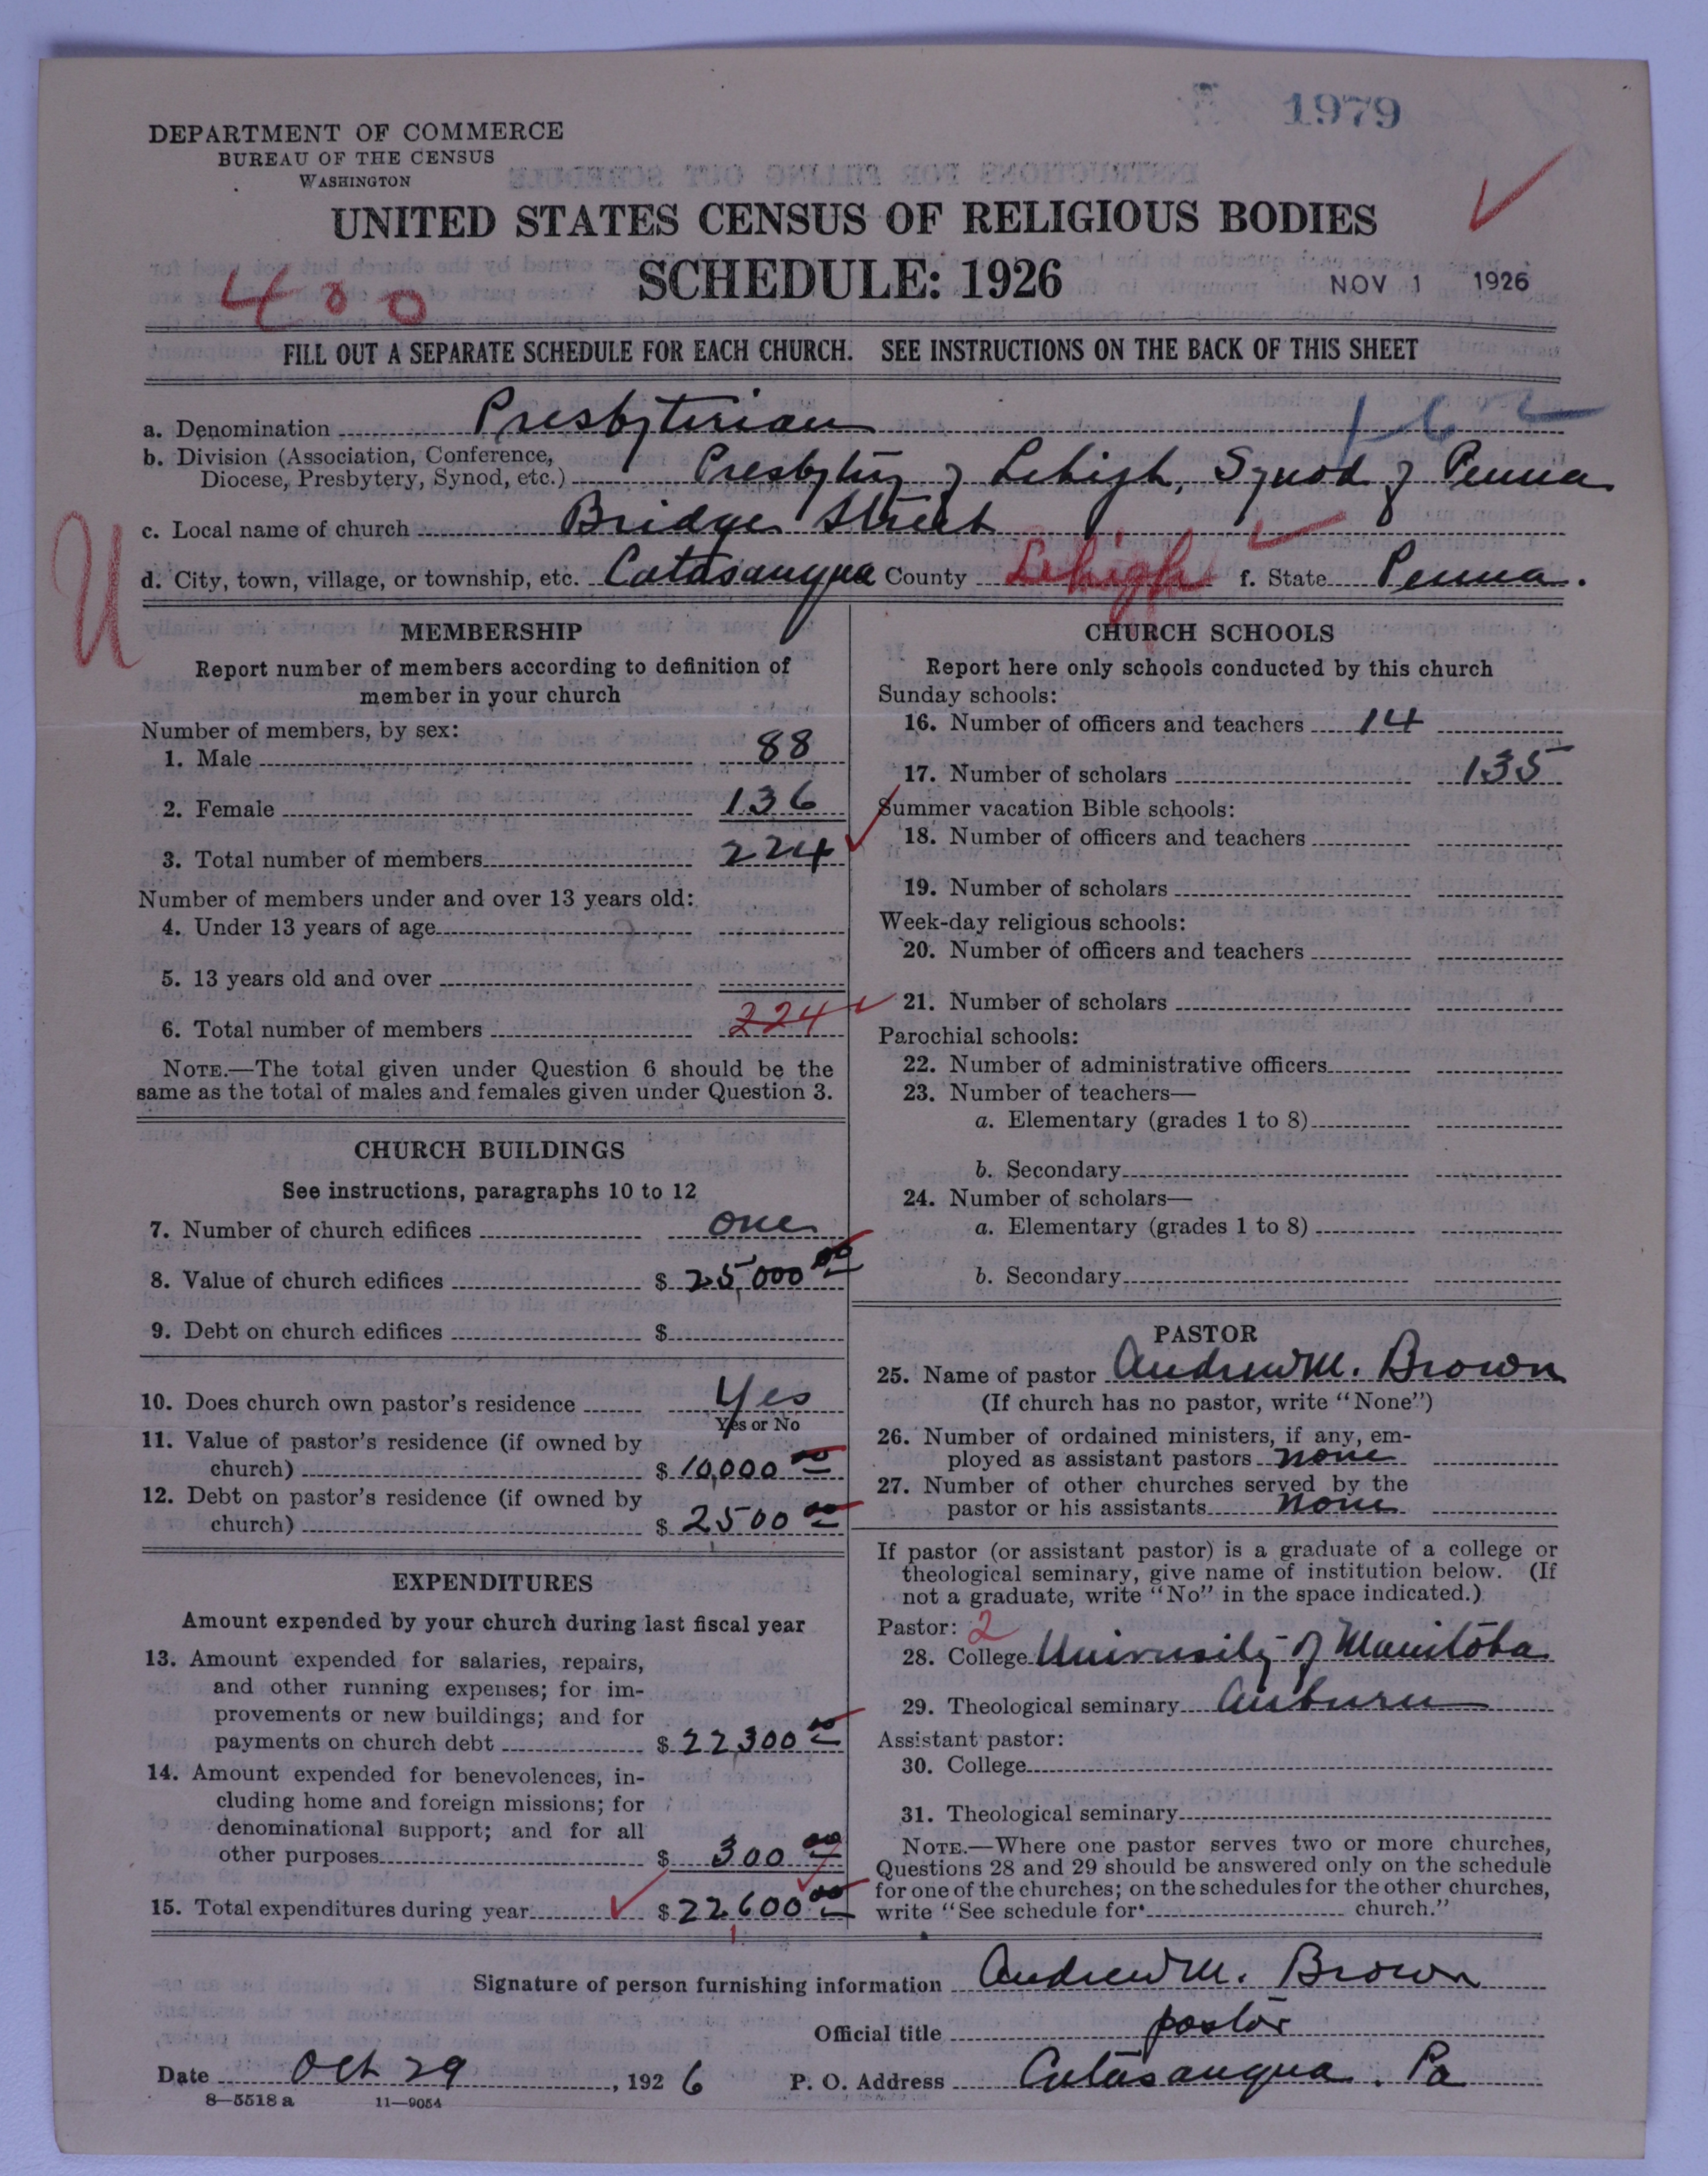 1979
DEPARTMENT OF COMMERCE
BUREAU OF THE CENSUS
WASHINGTON
UNITED STATES CENSUS OF RELIGIOUS BODIES
SCHEDULE: 1926
400
NOV 1 1926
FILL OUT A SEPARATE SCHEDULE FOR EACH CHURCH. SEE INSTRUCTIONS ON THE BACK OF THIS SHEET
a. Denomination Presbyterian
b. Division (Association, Conference,
Diocese, Presbytery, Synod, etc.) Presbytery of Lehigh, Synod of Penna
c. Local name of church Bridge Street
U
d. City, town, village, or township, etc. Catasauqua County Lehigh f. State Penna.
MEMBERSHIP
Report number of members according to definition of
member in your church
Number of members, by sex:
1. Male 88
2. Female 136
3. Total number of members 224
Number of members under and over 13 years old:
4. Under 13 years of age
5. 13 years old and over
6. Total number of members 224
NOTE.—The total given under Question 6 should be the
same as the total of males and females given under Question 3.
CHURCH BUILDINGS
See instructions, paragraphs 10 to 12
7. Number of church edifices one
8. Value of church edifices $ 25,000 00
9. Debt on church edifices $
10. Does church own pastor's residence Yes
Yes or No
11. Value of pastor's residence (if owned by
church) $ 10,000 00
12. Debt on pastor's residence (if owned by
church) $ 2500 00
EXPENDITURES
Amount expended by your church during last fiscal year
13. Amount expended for salaries, repairs,
and other running expenses; for im-
provements or new buildings; and for
payments on church debt $ 22300 00
14. Amount expended for benevolences, in-
cluding home and foreign missions; for
denominational support; and for all
other purposes $ 300 00
15. Total expenditures during year $ 22600 00
CHURCH SCHOOLS
Report here only schools conducted by this church
Sunday schools:
16. Number of officers and teachers 14
17. Number of scholars 135
Summer vacation Bible schools:
18. Number of officers and teachers
19. Number of scholars
Week-day religious schools:
20. Number of officers and teachers
21. Number of scholars
Parochial schools:
22. Number of administrative officers
23. Number of teachers—
a. Elementary (grades 1 to 8)
b. Secondary
24. Number of scholars—
a. Elementary (grades 1 to 8)
b. Secondary
PASTOR
25. Name of pastor Andrew M. Brown
(If church has no pastor, write "None")
26. Number of ordained ministers, if any, em-
ployed as assistant pastors none
27. Number of other churches served by the
pastor or his assistants none
If pastor (or assistant pastor) is a graduate of a college or
theological seminary, give name of institution below. (If
not a graduate, write "No" in the space indicated.)
Pastor: 2
28. College University of Manitoba
29. Theological seminary Auburn
Assistant pastor:
30. College
31. Theological seminary
NOTE.—Where one pastor serves two or more churches,
Questions 28 and 29 should be answered only on the schedule
for one of the churches; on the schedules for the other churches,
write "See schedule for church."
Signature of person furnishing information Andrew M. Brown
Official title pastor
Date Oct 29, 1926 P. O. Address Catasauqua. Pa
8—5518 a 11—9054